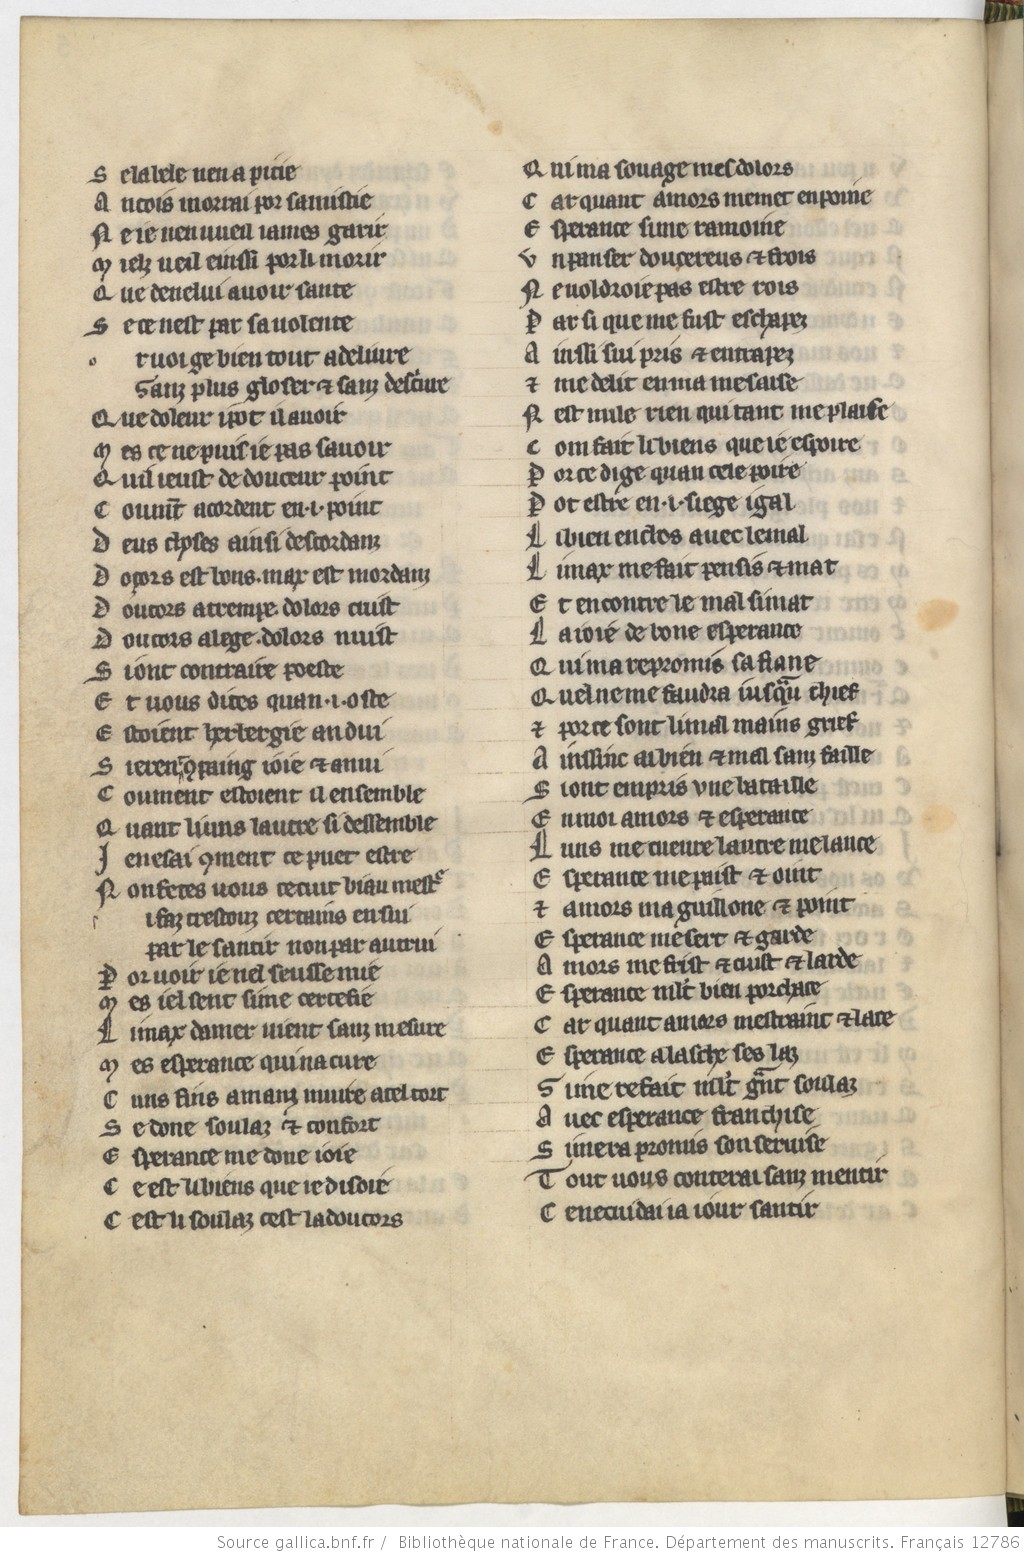 S e la bele nen a pitie
A ncois morrai por samistie
N e ie nen uueil iames garir
M ielz ueil einssi por li morir
Q ue de nelui auoir sante
S e ce nest par sa uolente
o r uoi ge bien tout a deliure
Sanz plus gloser & sanz descriure
Q ue doleur i pot il auoir
M es ce ne puis ie pas sauoir
Q uil i eust de douceur point
C oument acordent en .i. point
D eus choses ainsi descordanz
D oçors est bons . max est mordanz
D oucors atrempe . dolors cuist
D oucors alege . dolors nuist
S i ont contraire poeste
E t uous dites quan .i. oste
E stoient herbergie andui
S ieren ꝯpaing ioie & anui
C oument estoient il ensemble
Q uant li uns lautre si dessemble
J e ne sai ꝯment ce puet estre
N on fetes uous ce cuit biau mestre
i faz trestouz certains en sui
par le santir non par autrui
P or uoir ie nel seusse mie
M es iel sent si me certefie
L i max damer uient sanz mesure
M es esperance qui na cure
C uns fins amanz muire a cel tort
S e done soulaz & confort
E sperance me done ioie
C e est li biens que ie disoie
C est li soulaz cest la doucors
Q ui ma souage mes dolors
C ar quant amors me met en poine
E sperance si me ramoine
V n panser douçereus & frois
N e uoldroie pas estre rois
P ar si que me fust eschapez
A inssi sui pris & entrapez
& me delit en ma mesaise
N est nule rien qui tant me plaise
C om fait li biens que ie espoire
P or ce di ge quan cele poire
P ot estre en .i. siege igal
L i bien enclos auec le mal
L i max me fait pensis & mat
E t encontre le mal simat
L a ioie de bone esperance
Q ui ma repromis sa fiance
Q uel ne me faudra iusquau chief
& por ce sont li mal mains grief
A inssinc ai bien & mal sanz faille
S i ont empris vne bataille
E n moi amors & esperance
L uns me cueure lautre me lance
E sperance me paist & oint
& amors ma guillone & point
E sperance me sert & garde
A mors me frist & cuist & larde
E sperance mlt bien porchace
C ar quant amors mestraint & lace
E sperance alasche ses laz
S i me refait mlt grant soulaz
A uec esperance franchise
S i mera promis son seruise
T out uous conterai sanz mentir
C e ne cuidai ia iour santir
Source gallica.bnf.fr / Bibliothèque nationale de France. Département des manuscrits. Français 12786